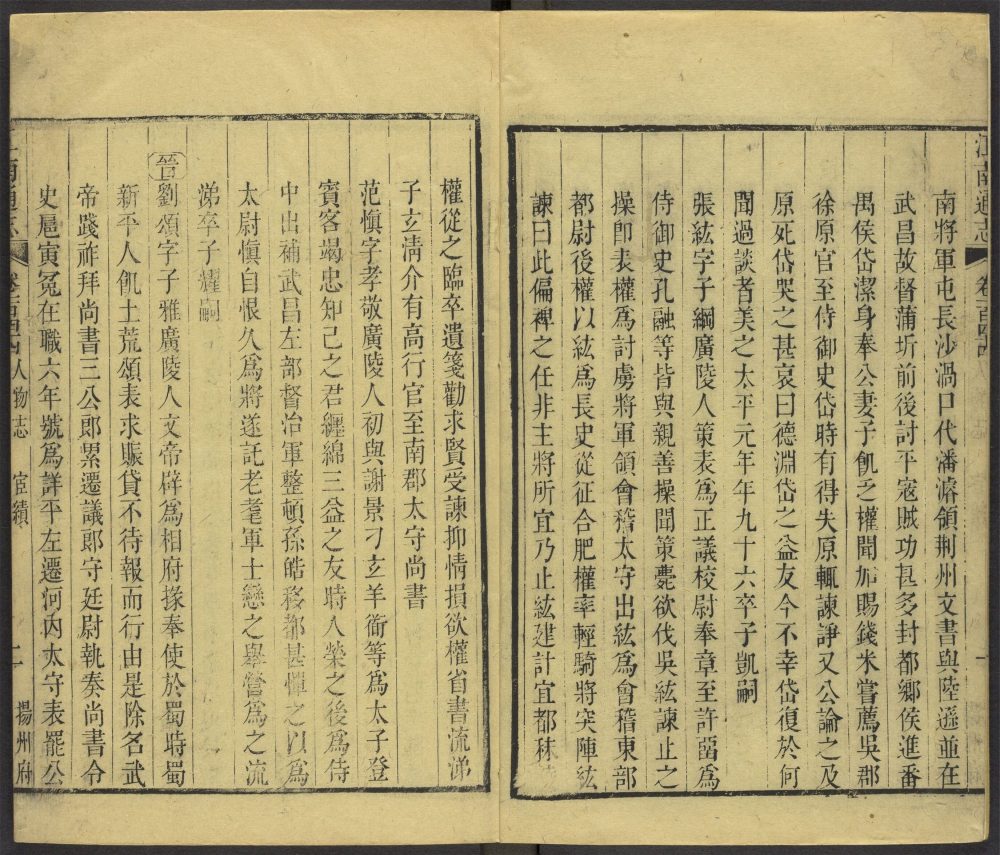 江南通志 卷一百四十四
南將軍屯長沙漚口代潘濬領荆州文書與陸遜並在
武昌故督蒲圻前後討平寇賊功甚多封都鄉侯進番
禺侯岱潔身奉公妻子飢乏權聞加賜錢米嘗薦吳郡
徐原官至侍御史岱時有得失原輒諫諍又公論之及
原死岱哭之甚哀曰德淵岱之益友今不幸岱復於何
聞過談者美之太平元年年九十六卒子凱嗣
張紘字子綱廣陵人策表爲正議校尉奉章至許畱爲
侍御史孔融等皆與親善操聞策薨欲伐吳紘諫止之
操即表權爲討虜將軍領會稽太守出紘爲會稽東部
都尉後權以紘爲長史從征合肥權率輕騎將突陣紘
諫曰此偏裨之任非主將所宜乃止紘建計宜都秣
權從之臨卒遺箋勸求賢受諫抑情損欲權省書流涕
子玄淸介有高行官至南郡太守尚書
范愼字孝敬廣陵人初與謝景刁玄羊衜等爲太子登
賓客竭忠知己之君纏綿三益之友時人榮之後爲侍
中出補武昌左部督治軍整頓孫皓移都甚憚之以爲
太尉愼自恨久爲將遂託老耄軍士戀之舉營爲之流
涕卒子耀嗣
晉劉頌字子雅廣陵人文帝辟爲相府掾奉使於蜀時蜀
新平人飢土荒頌表求賑貸不待報而行由是除名武
帝踐祚拜尚書三公郎累遷議郎守廷尉執奏尚書令
史扈寅冤在職六年號爲詳平左遷河內太守表罷公
江南通志 卷一百四十四 人物志 宦績 二 揚州府